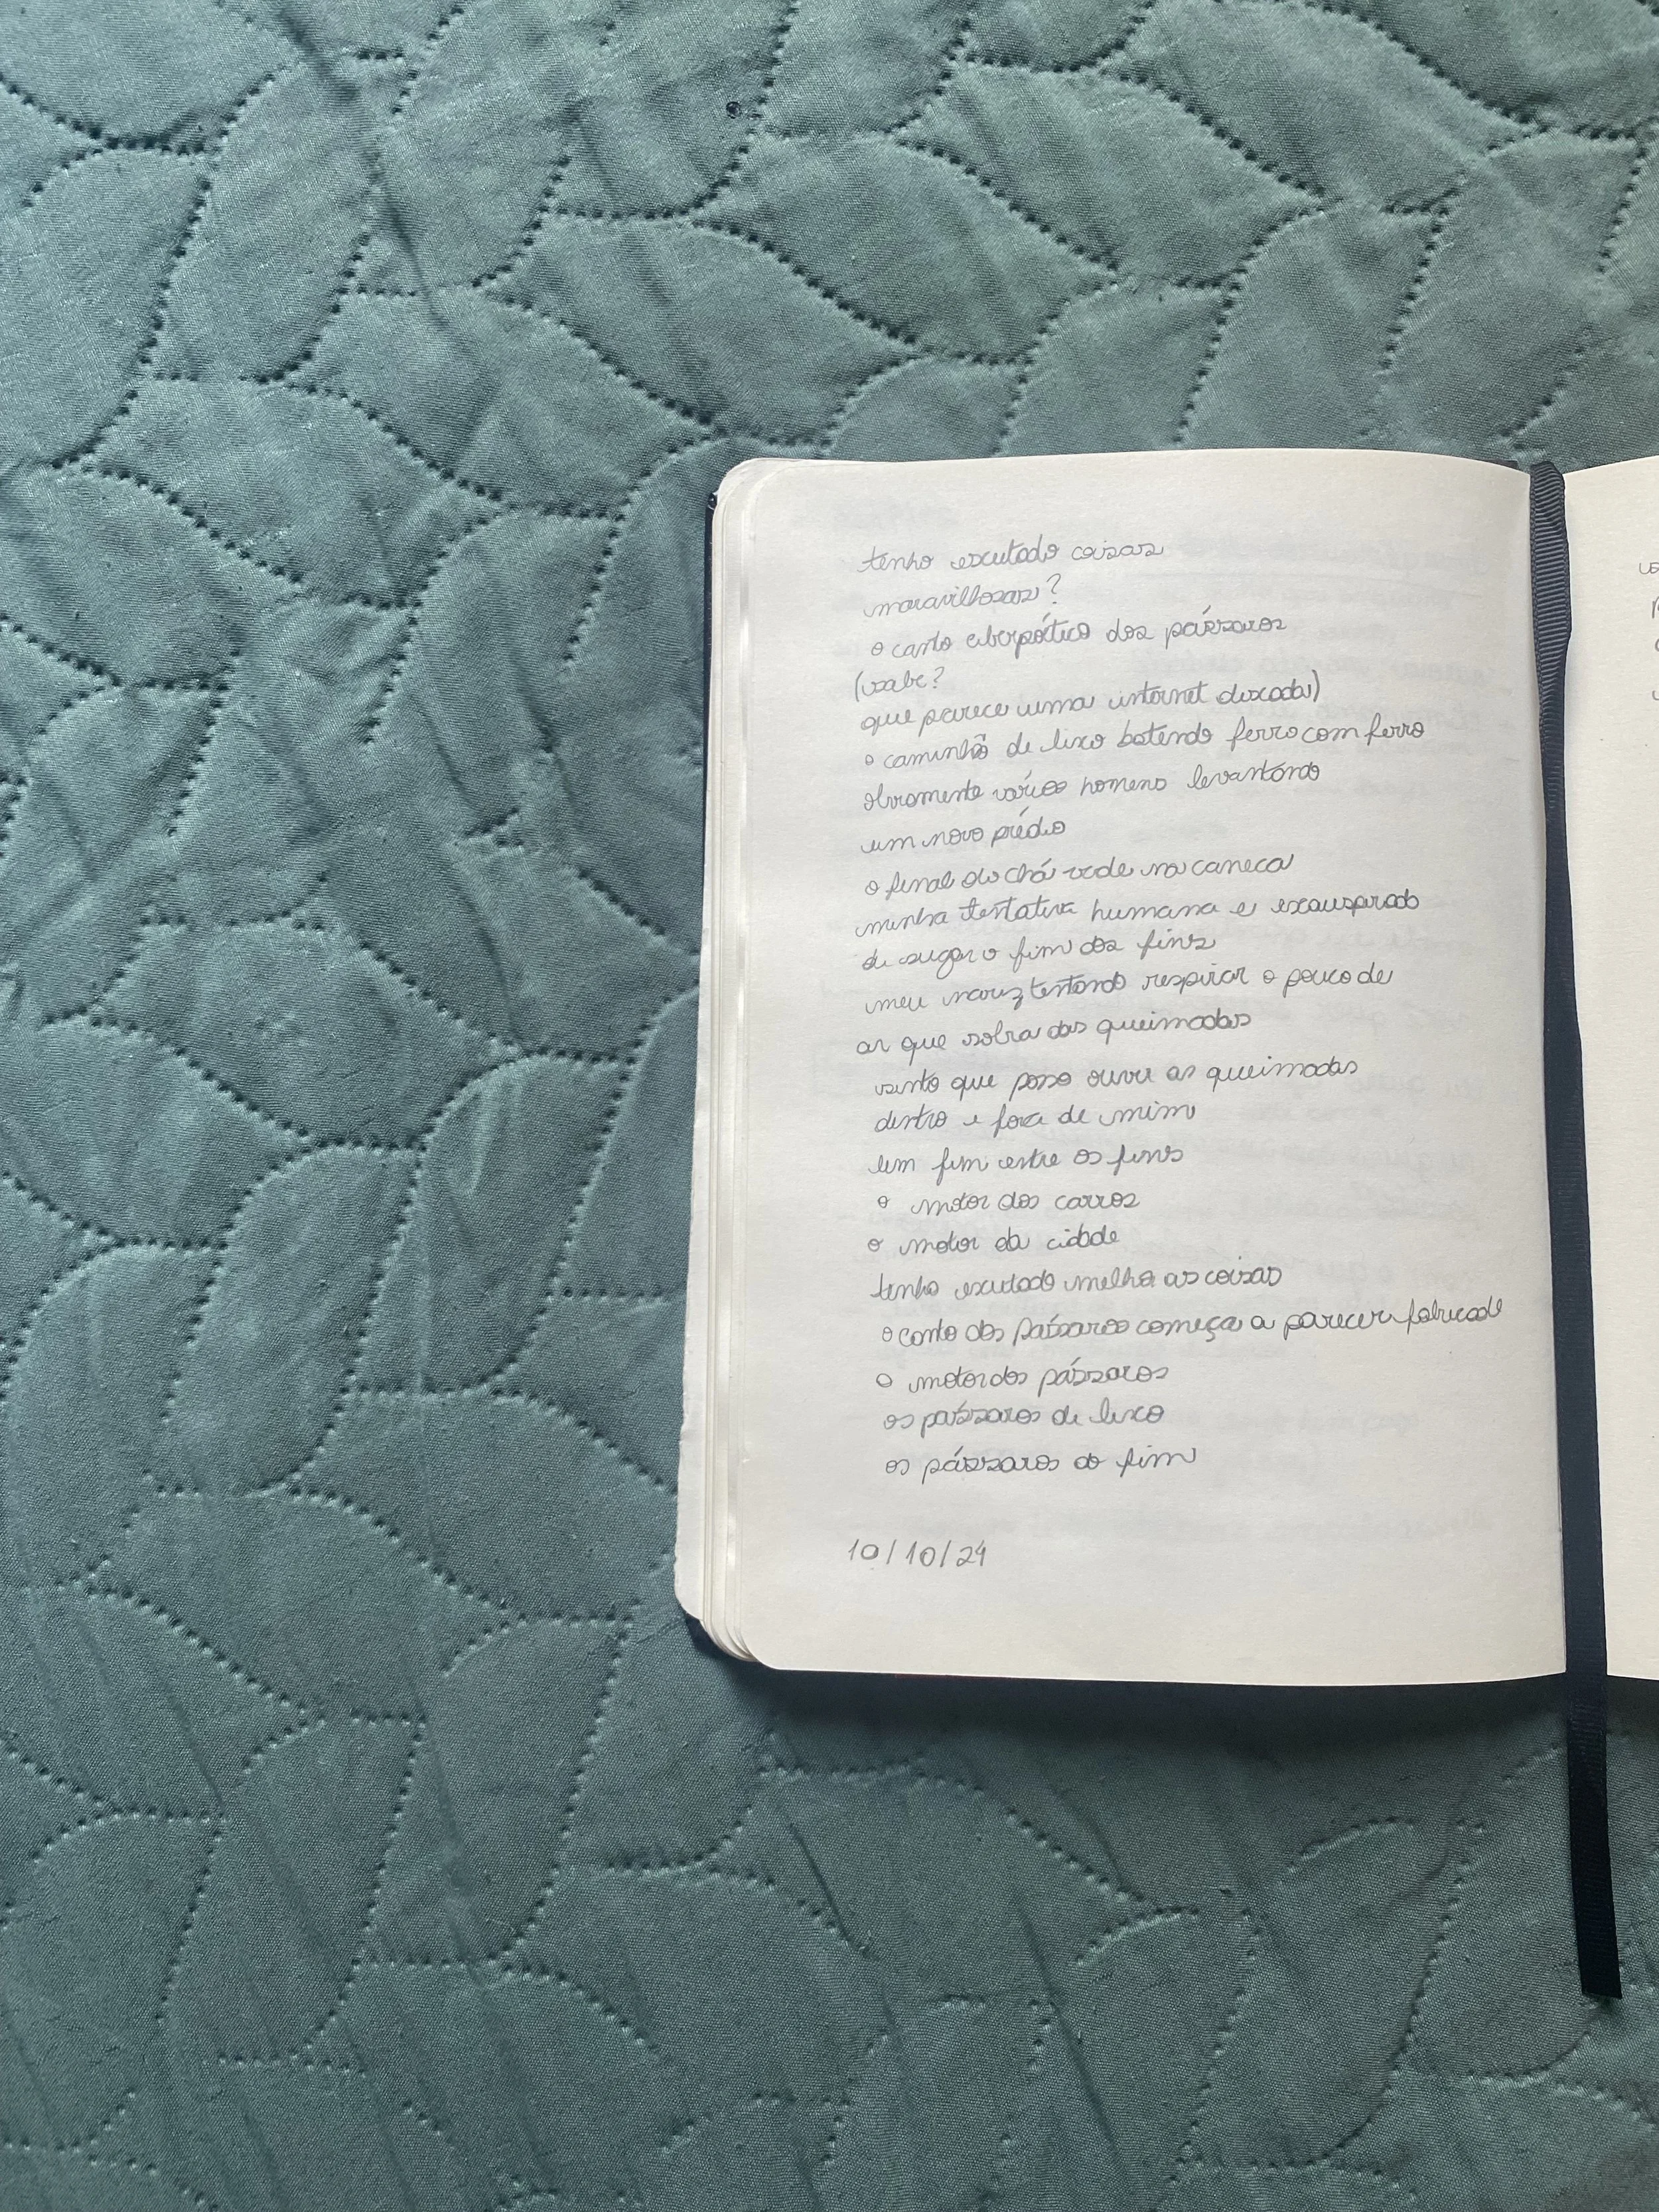 tenho escutado coisas
maravilhosas?
o canto ciberpoético dos pássaros
(sabe?
que parece uma internet discada)
o caminhão de lixo batendo ferro com ferro
obviamente vários homens levantando
um novo prédio
o final do chá verde na caneca
minha tentativa humana e exasperada
de sugar o fim dos fins
meu nariz tentando respirar o pouco de
ar que sobra das queimadas
sinto que posso ouvir as queimadas
dentro e fora de mim
um fim entre os fins
o motor dos carros
o motor da cidade
tenho escutado melhor as coisas
o canto dos pássaros começa a parecer fabricado
o motor dos pássaros
os pássaros de lixo
os pássaros do fim
10/10/24